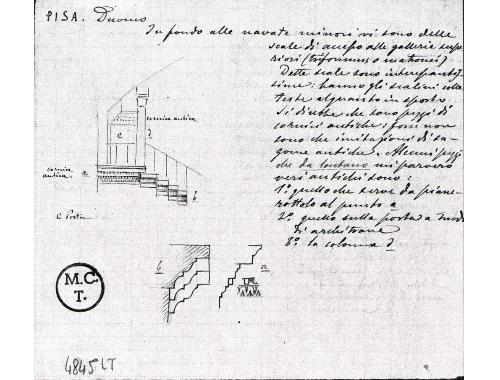 PISA. Duomo
In fondo alle navate minori vi sono delle
scale di accesso alle gallerie supe
riori (triforiums o matronei)
Dette scale sono interessantis
sime: hanno gli scalini colle
teste alquanto in sporto
Si direbbe che sono pezzi di
cornici antiche; forse non
sono che imitazioni di sa
gome antiche. Alcuni pezzi
che da lontano mi parvero
veri antichi sono:
1° quello che serve da piane
rottolo al punto a
2° quello sulla porta a modo
di architrave
3° la colonna d
cornice antica
c
d
cornice
antica
a
b
C Porta
b
a
M.C.
T.
4845 LT